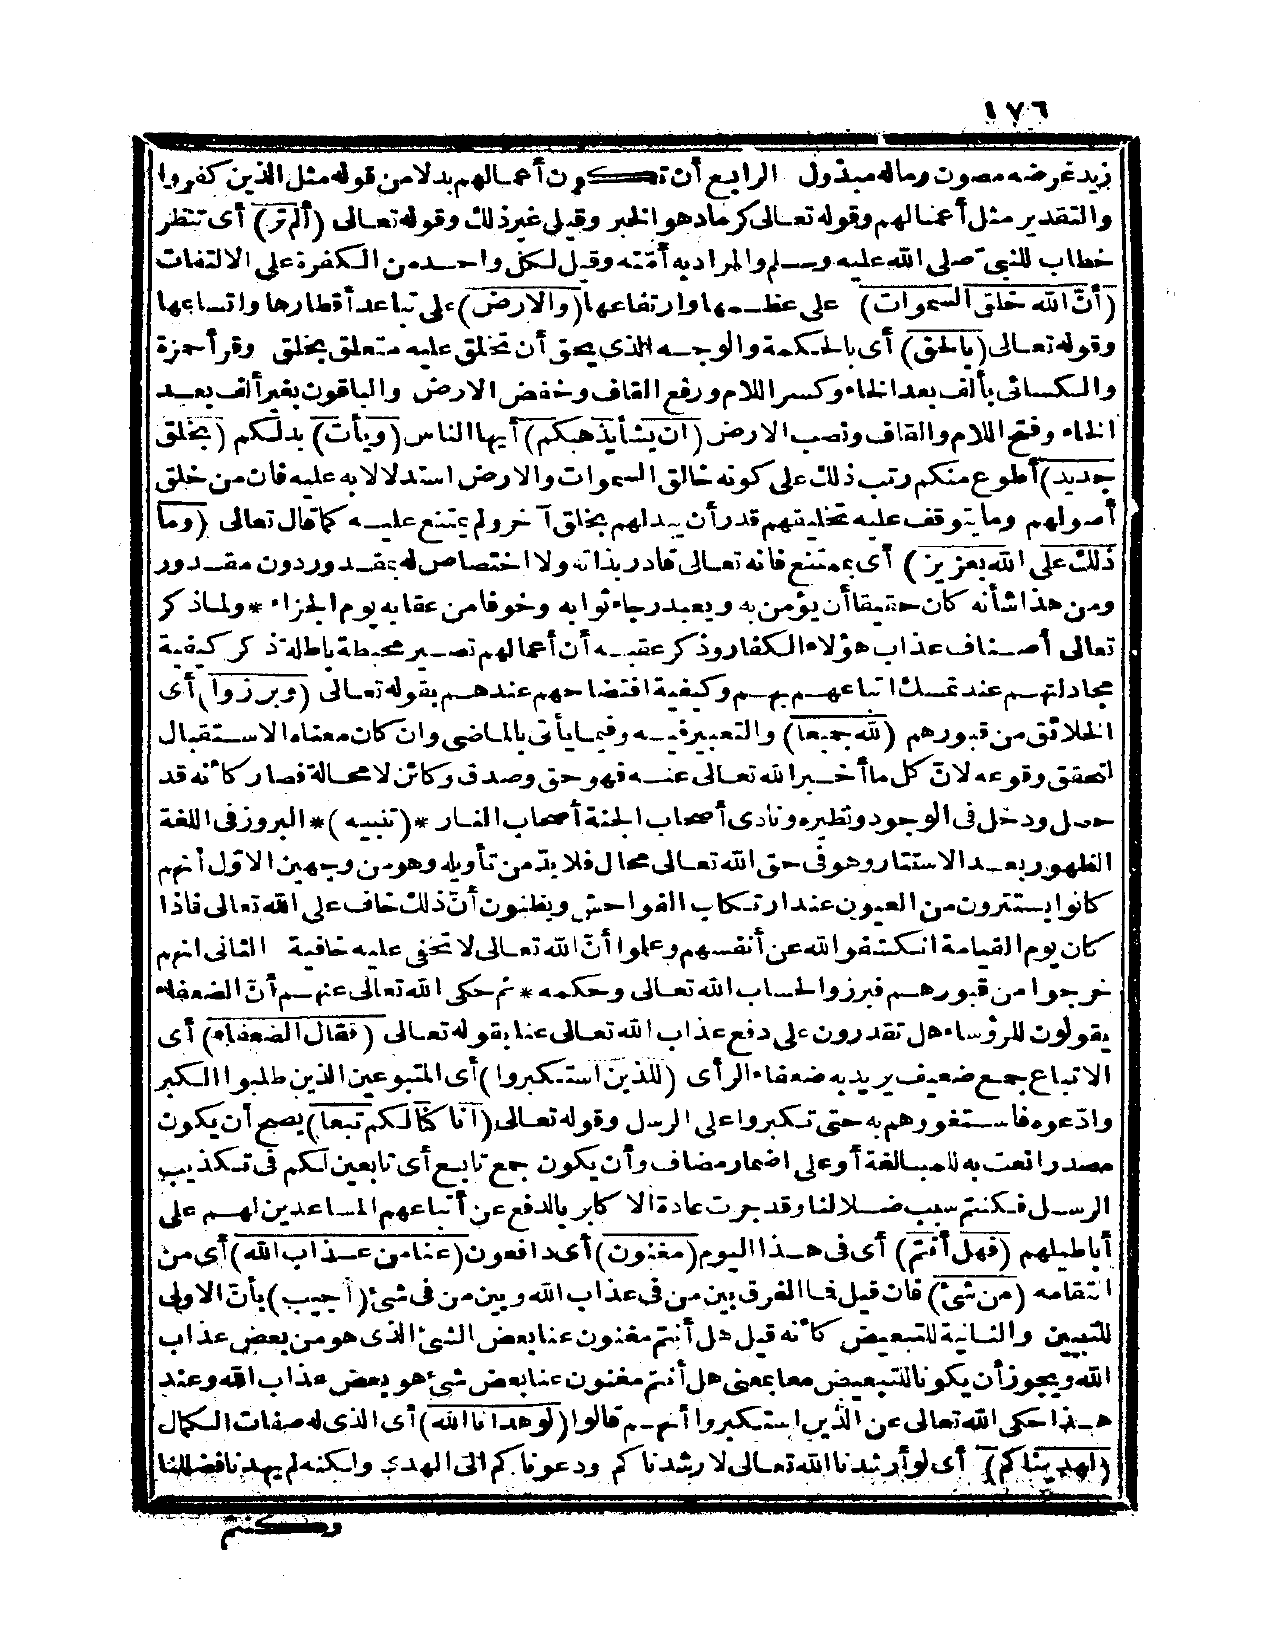 ١٧٦
زيد عرضه مصون وماله مبذول الرابع أن تكون أعمالهم بدلا من قوله مثل الذين كفروا
والتقدير مثل أعمالهم وقوله تعالى كرماد هو الخبر وقيل غير ذلك وقوله تعالى (ألم تر) أى تنظر
خطاب للنبى صلى الله عليه وسلم والمراد به أمّته وقيل لكل واحد من الكفرة على الالتفات
(أنّ الله خلق السموات) على عظمها وارتفاعها (والارض) على تباعد أقطارها واتساعها
وقوله تعالى (بالحق) أى بالحكمة والوجه الذى يحق أن يخلق عليه متعلق بخلق وقرأ حمزة
والكسائى بألف بعد الخاء وكسر اللام ورفع القاف وخفض الارض والباقون بغير ألف بعد
الخاء وفتح اللام والقاف ونصب الارض (ان يشأ يذهبكم) أيها الناس (ويأت) بدلكم (بخلق
جديد) أطوع منكم رتب ذلك على كونه خالق السموات والارض استدلالا به عليه فان من خلق
أصولهم وما يتوقف عليه تخليقهم قدر أن يبدلهم بخلق آخر ولم يمتنع عليه كما قال تعالى (وما
ذلك على الله بعزيز) أى بممتنع فانه تعالى قادر بذاته ولا اختصاص له بمقدور دون مقدور
ومن هذا شأنه كان حقيقا أن يؤمن به ويعبد رجاء ثوابه وخوفا من عقابه يوم الجزاء * ولما ذكر
تعالى أصناف عذاب هؤلاء الكفار وذكر عقبه أن أعمالهم تصير محبطة باطلة ذكر كيفية
مجادلتهم عند تمسك اتباعهم بهم وكيفية افتضاحهم عندهم بقوله تعالى (وبرزوا) أى
الخلائق من قبورهم (لله جميعا) والتعبير فيه وفيما يأتى بالماضى وان كان معناه الاستقبال
لتحقق وقوعه لانّ كل ما أخبر الله تعالى عنه فهو حق وصدق وكائن لا محالة فصار كأنه قد
حصل ودخل فى الوجود ونظيره ونادى أصحاب الجنة أصحاب النار * (تنبيه) * البروز فى اللغة
الظهور بعد الاستتار وهو فى حق الله تعالى محال فلا بدّ من تأويله وهو من وجهين الاوّل أنهم
كانوا يستترون من العيون عند ارتكاب الفواحش ويظنون أنّ ذلك خاف على الله تعالى فاذا
كان يوم القيامة انكشفوا لله عن أنفسهم وعلموا أنّ الله تعالى لا تخفى عليه خافية الثانى انهم
خرجوا من قبورهم فبرزوا لحساب الله تعالى وحكمه * ثم حكى الله تعالى عنهم أنّ الضعفاء
يقولون للرؤساء هل تقدرون على دفع عذاب الله تعالى عنا بقوله تعالى (فقال الضعفاء) أى
الاتباع جمع ضعيف يريد به ضعفاء الرأى (للذين استكبروا) أى المتبوعين الذين طلبوا الكبر
وادّعوه فاستغووهم به حتى تكبروا على الرسل وقوله تعالى (انا كنا لكم تبعا) يصح أن يكون
مصدرا نعت به للمبالغة أو على اضمار مضاف وأن يكون جمع تابع أى تابعين لكم فى تكذيب
الرسل فكنتم سبب ضلالنا وقد جرت عادة الاكابر بالدفع عن أتباعهم المساعدين لهم على
أباطيلهم (فهل أنتم) أى فى هذا اليوم (مغنون) أى دافعون (عنا من عذاب الله) أى من
انتقامه (من شئ) فان قيل فما الفرق بين من فى عذاب الله وبين من فى شئ (أجيب) بأنّ الاولى
للتبيين والثانية للتبعيض كأنه قيل هل أنتم مغنون عنا بعض الشئ الذى هو من بعض عذاب
الله ويجوز أن يكونا للتبعيض معا بمعنى هل أنتم مغنون عنا بعض شئ هو بعض عذاب الله وعند
هذا حكى الله تعالى عن الذين استكبروا أنهم قالوا (لو هدانا الله) أى الذى له صفات الكمال
(لهديناكم) أى لو أرشدنا الله تعالى لارشدناكم ودعوناكم الى الهدى ولكنه لم يهدنا فضللنا
وكنتم